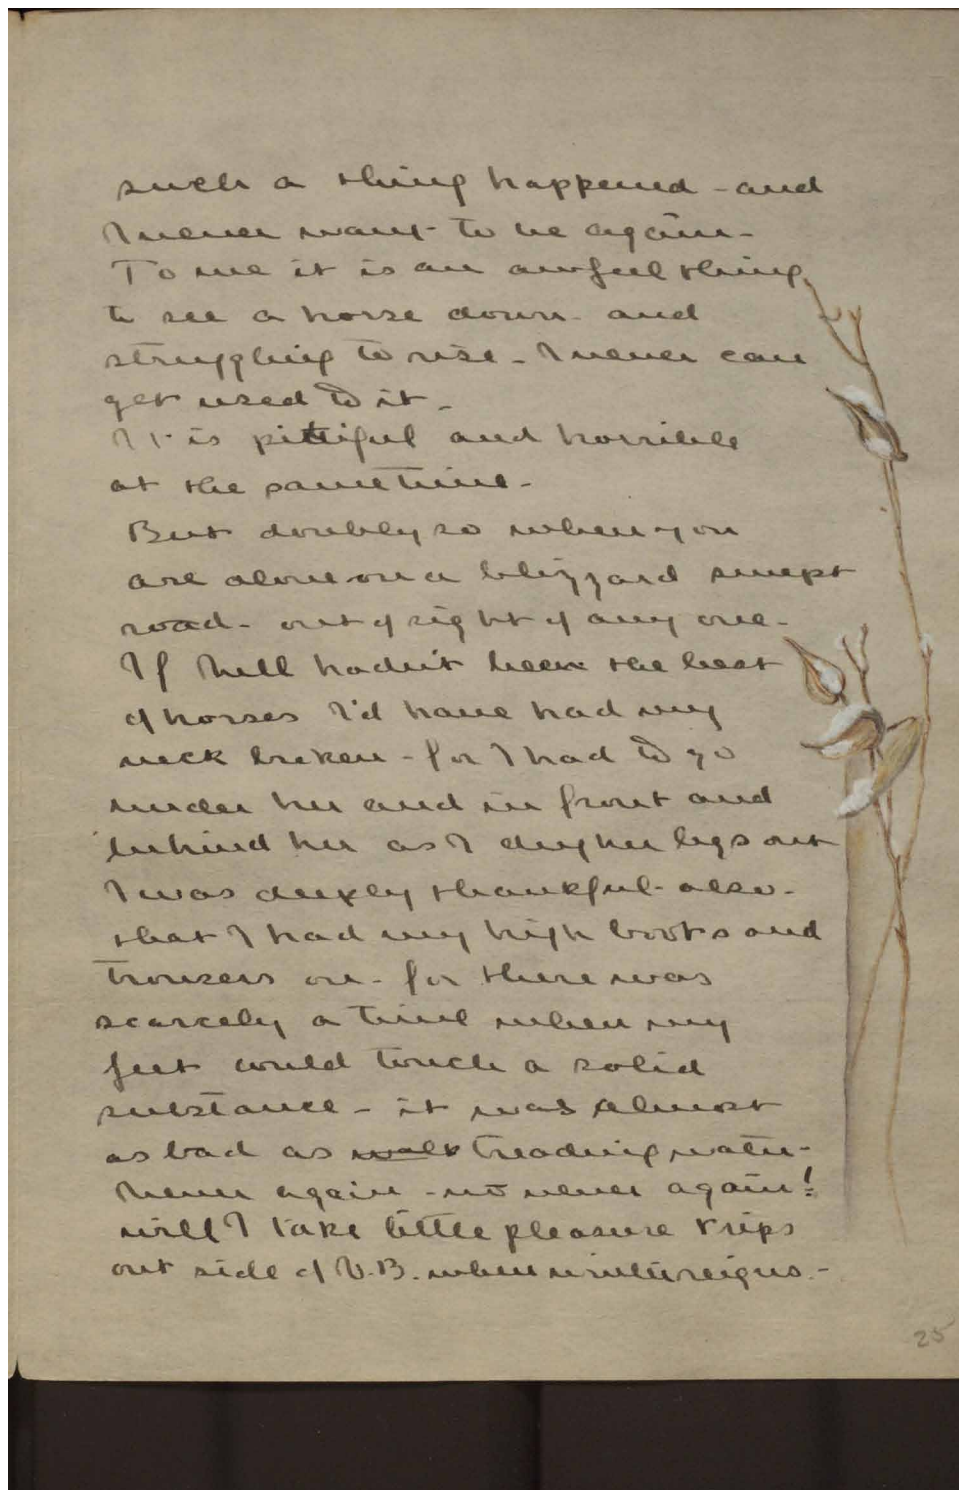 such a thing happened - and
I never want to be again -
To me it is an awfeul thing
to see a horse down - and
struggling to rise - I never can
get used to it -
It is pittiful and horrible
at the same time -
But doubly so when you
are alone on a blizzard swept
road - out of sight of any one -
If Nell hadn't been the best
of horses I'd have had my
neck broken - for I had to go
under her and in front and
behind her as I dug her legs out
I was deeply thankful - also -
that I had my high boots and
trousers on - for there was
scarcely a time when my
feet could touch a solid
substance - it was almost
as bad as walk treading water -
Never again - no never again!
will I take little pleasure trips
out side of V.B. when winter reigns -
25